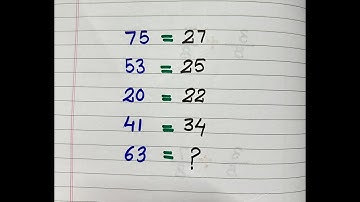 75 = 27
53 = 25
20 = 22
41 = 34
63 = ?